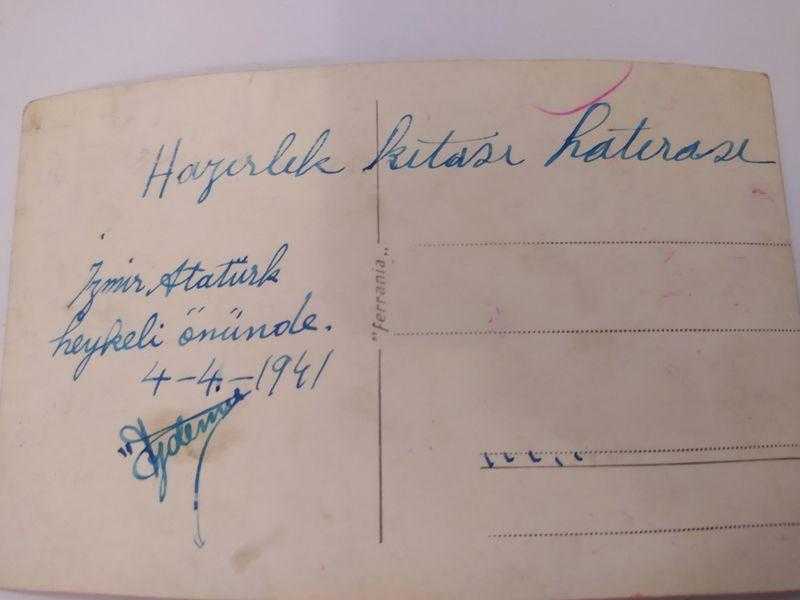 Hazırlık kıtası hatırası
İzmir, Atatürk
heykeli önünde.
4-4-1941
"ferrania"